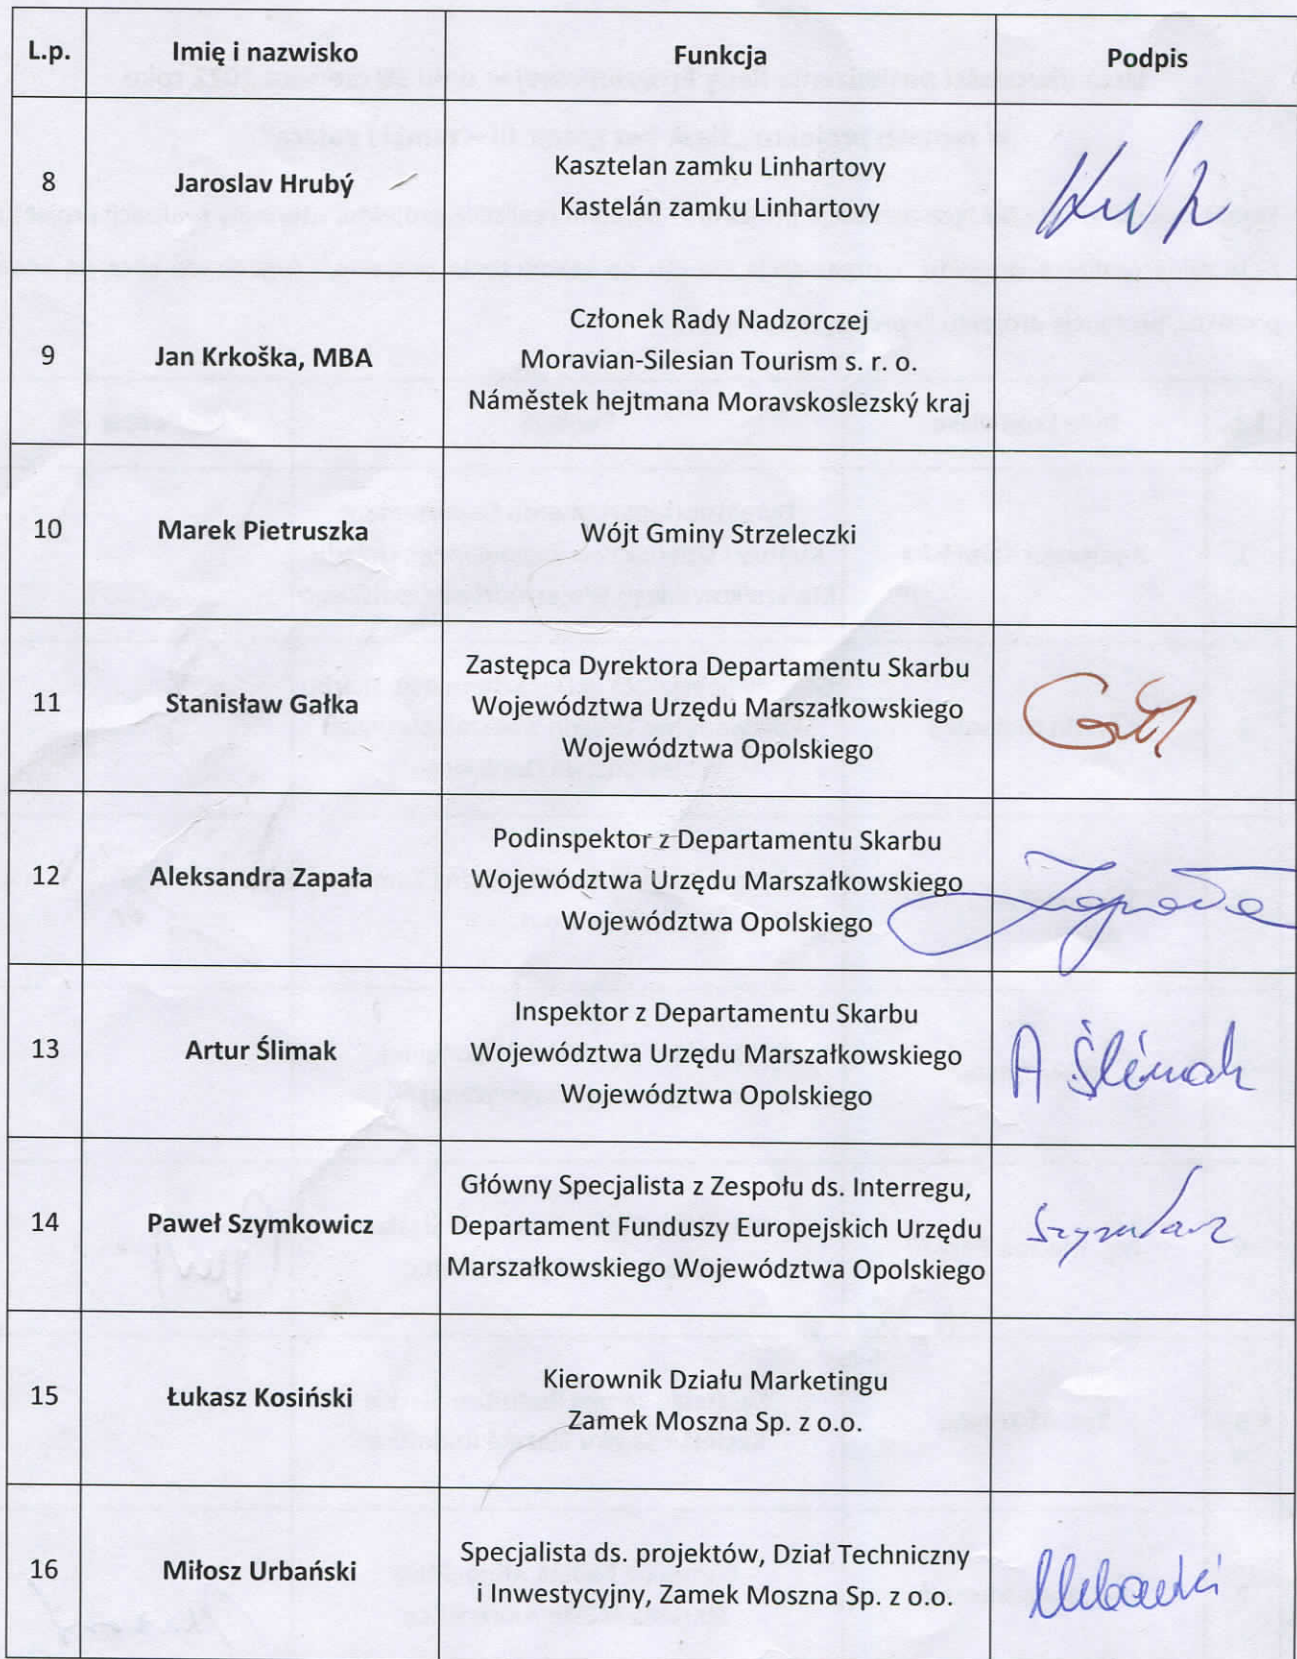 L.p. Imię i nazwisko Funkcja Podpis
8 Jaroslav Hrubý Kasztelan zamku Linhartovy
Kastelán zamku Linhartovy
9 Jan Krkoška, MBA Członek Rady Nadzorczej
Moravian-Silesian Tourism s. r. o.
Náměstek hejtmana Moravskoslezský kraj
10 Marek Pietruszka Wójt Gminy Strzeleczki
11 Stanisław Gałka Zastępca Dyrektora Departamentu Skarbu
Województwa Urzędu Marszałkowskiego
Województwa Opolskiego
12 Aleksandra Zapała Podinspektor z Departamentu Skarbu
Województwa Urzędu Marszałkowskiego
Województwa Opolskiego
13 Artur Ślimak Inspektor z Departamentu Skarbu
Województwa Urzędu Marszałkowskiego A Ślimak
Województwa Opolskiego
14 Paweł Szymkowicz Główny Specjalista z Zespołu ds. Interregu,
Departament Funduszy Europejskich Urzędu
Marszałkowskiego Województwa Opolskiego
15 Łukasz Kosiński Kierownik Działu Marketingu
Zamek Moszna Sp. z o.o.
16 Miłosz Urbański Specjalista ds. projektów, Dział Techniczny
i Inwestycyjny, Zamek Moszna Sp. z o.o.